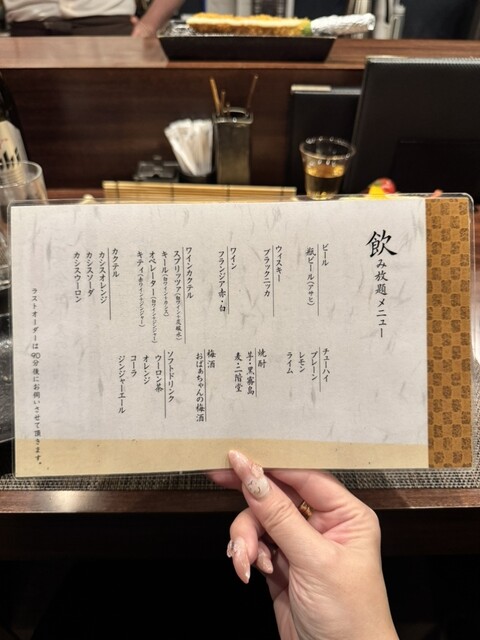 飲み放題メニュー
ビール
瓶ビール（アサヒ）
ウィスキー
ブラックニッカ
ワイン
フランジア赤・白
ワインカクテル
スプリッツァ（白ワイン＋炭酸水）
キール（白ワイン＋カシス）
オペレーター（白ワイン＋ジンジャー）
キティ（赤ワイン＋ジンジャー）
カクテル
カシスオレンジ
カシスソーダ
カシスウーロン
チューハイ
プレーン
レモン
ライム
焼酎
芋・黒霧島
麦・二階堂
梅酒
おばあちゃんの梅酒
ソフトドリンク
ウーロン茶
オレンジ
コーラ
ジンジャーエール
ラストオーダーは90分後にお伺いさせて頂きます。